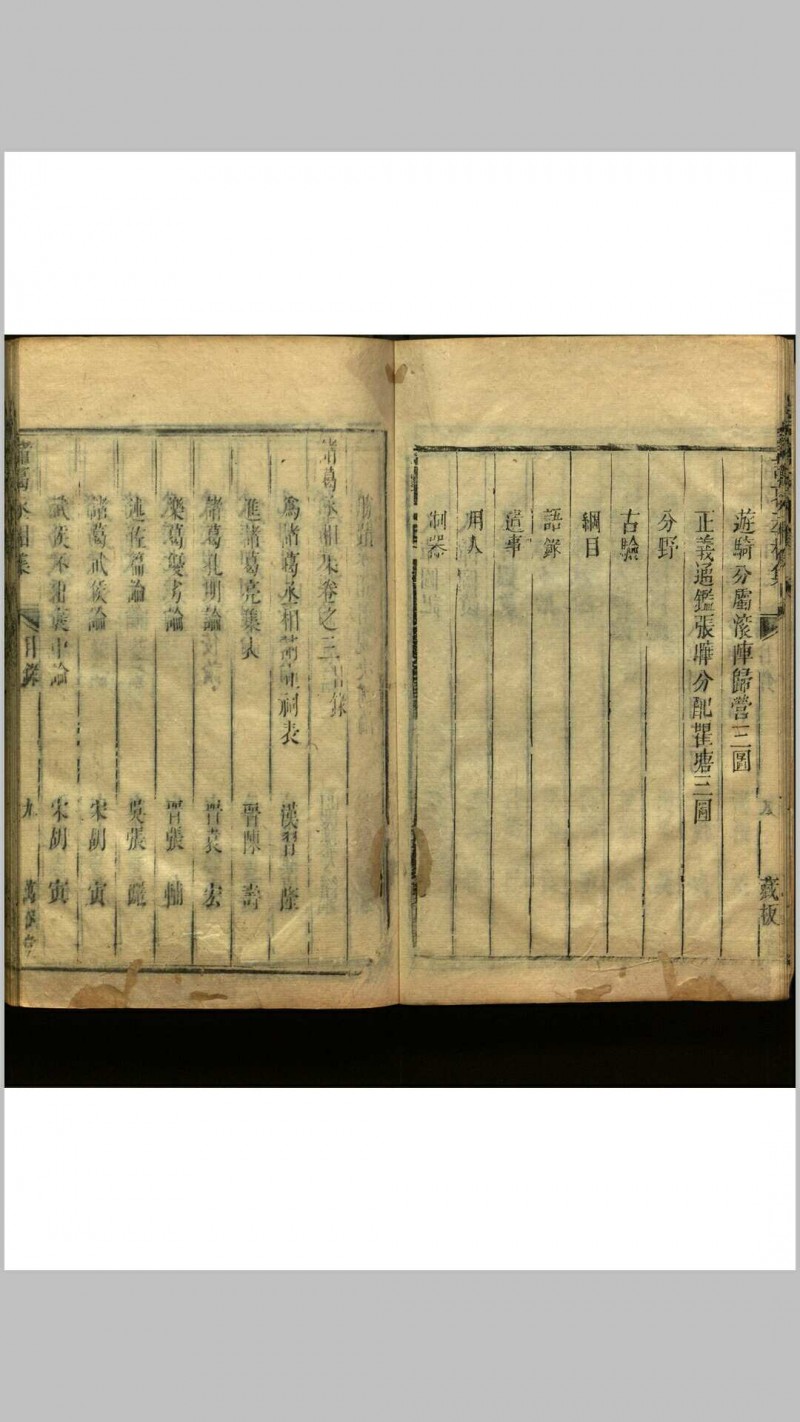 遊騎分屬滾陣歸營三圖
正義通鑑張驊分配瞿塘三圖
分野
古驗
綱目
語錄
遺事
用人
制器
藏板
勝蹟
諸葛丞相集卷之三目錄
為諸葛丞相請立祠表 漢習 隆
進諸葛亮集表 晉陳 壽
諸葛孔明論 晉袁 宏
樂葛雙劣論 晉張 輔
述佐篇論 吳張 儼
諸葛武侯論 宋胡 寅
武侯不相漢中論 宋胡 寅
諸葛丞相集 目錄 九 萬卷堂